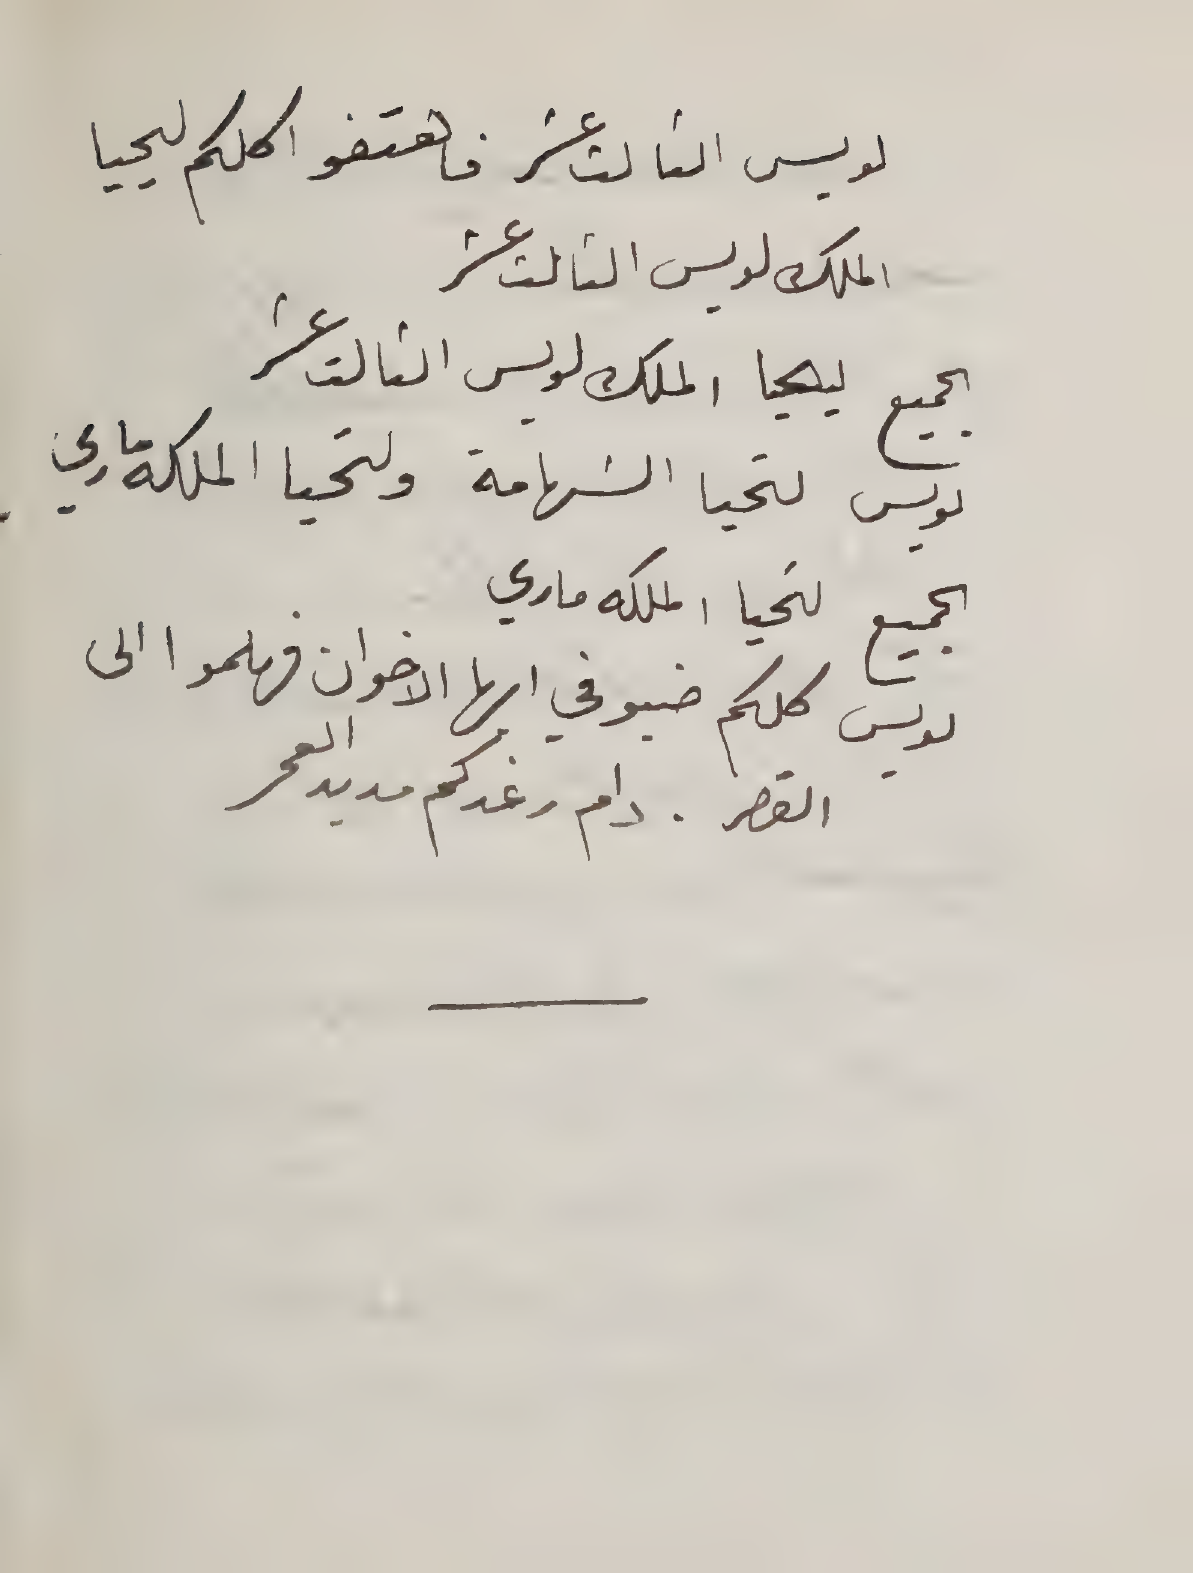 لويس الثالث عشر فاهتفو اكلكم ليحيا
الملك لويس الثالث عشر
الجميع ليحيا الملك لويس الثالث عشر
لويس لتحيا الشهامة ولتحيا الملكه ماري
الجميع لتحيا الملكه ماري
لويس كلكم ضيوفي ايها الاخوان فهلموا الى
القصر . دام رغدكم مديد العمر